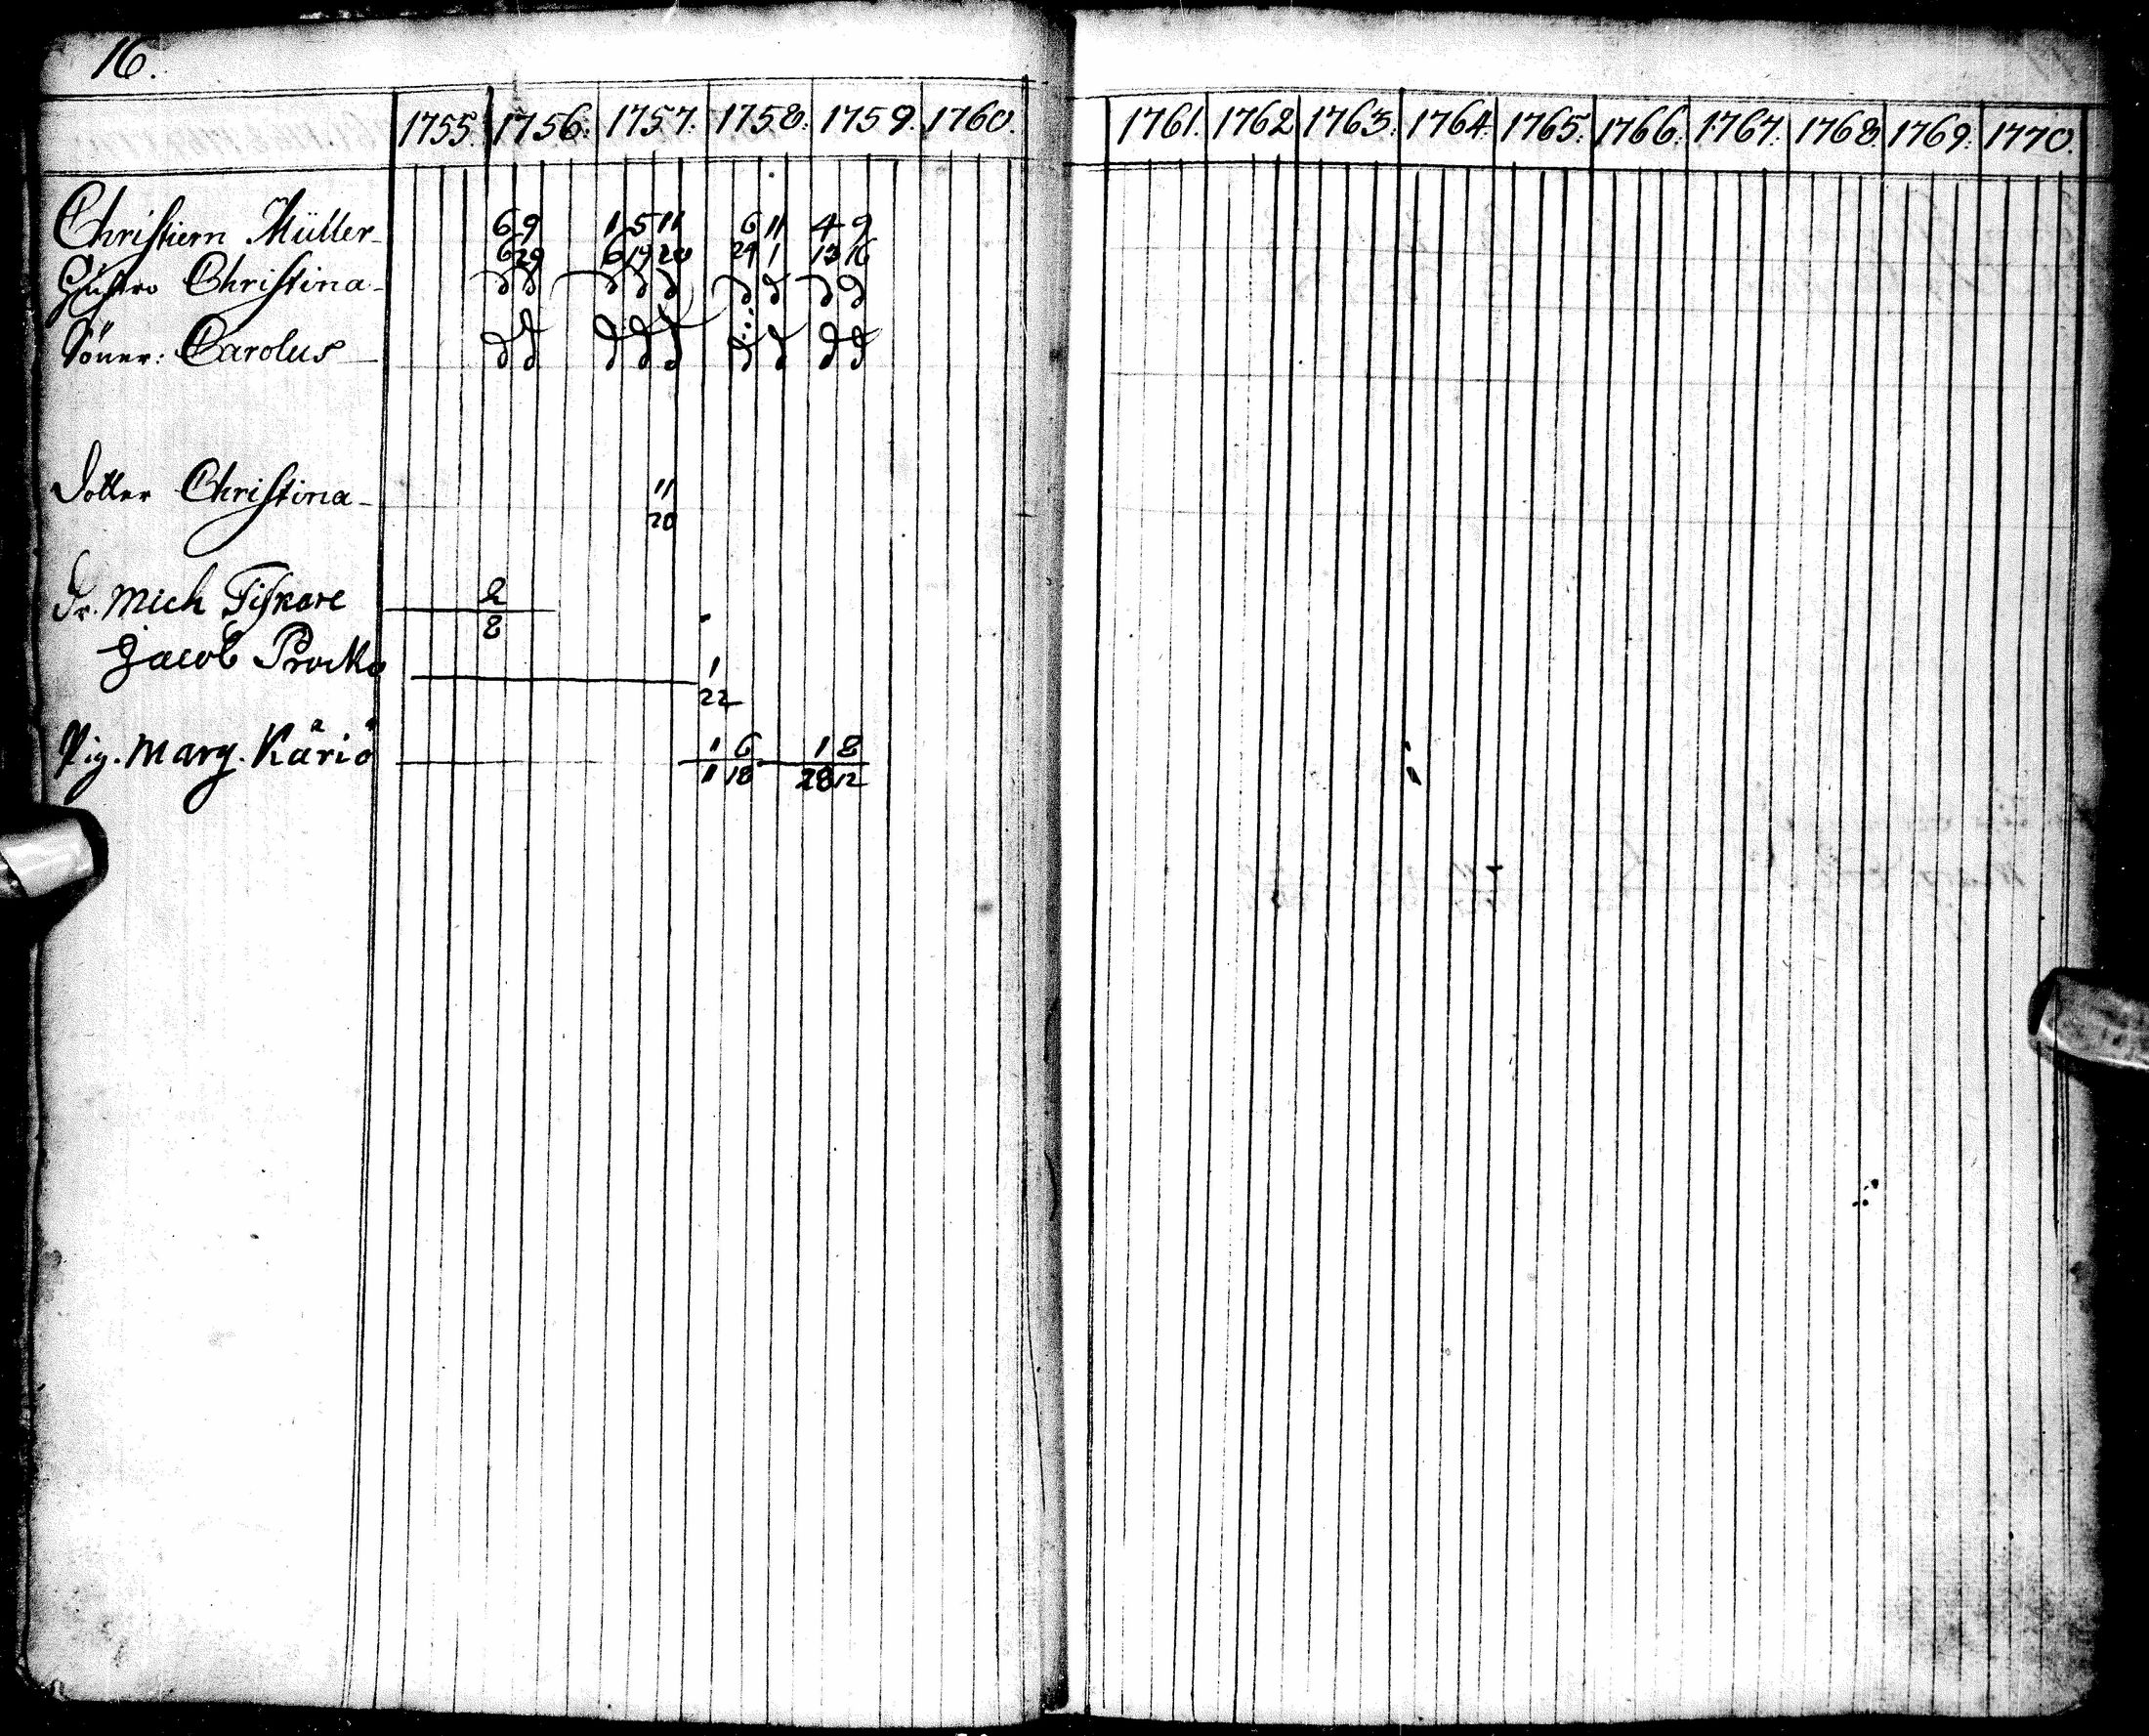 16.
1755. 1756. 1757. 1758. 1759. 1760. 1761. 1762 1763. 1764. 1765. 1766. 1767. 1768. 1769. 1770.
Christiern Müller 6 9 1 5 11 6 11 4 9
6 29 6 19 20 24 1 13 16
Hustro Christina d d d d d d d d d
Söner: Carolus d d d d d d d d d
Dotter Christina 11
20
Dr. Mich Fiskare 2
8
Jacob 1
22
Pig. Marg. Käriö 1 6 1 8
11 18 28 12